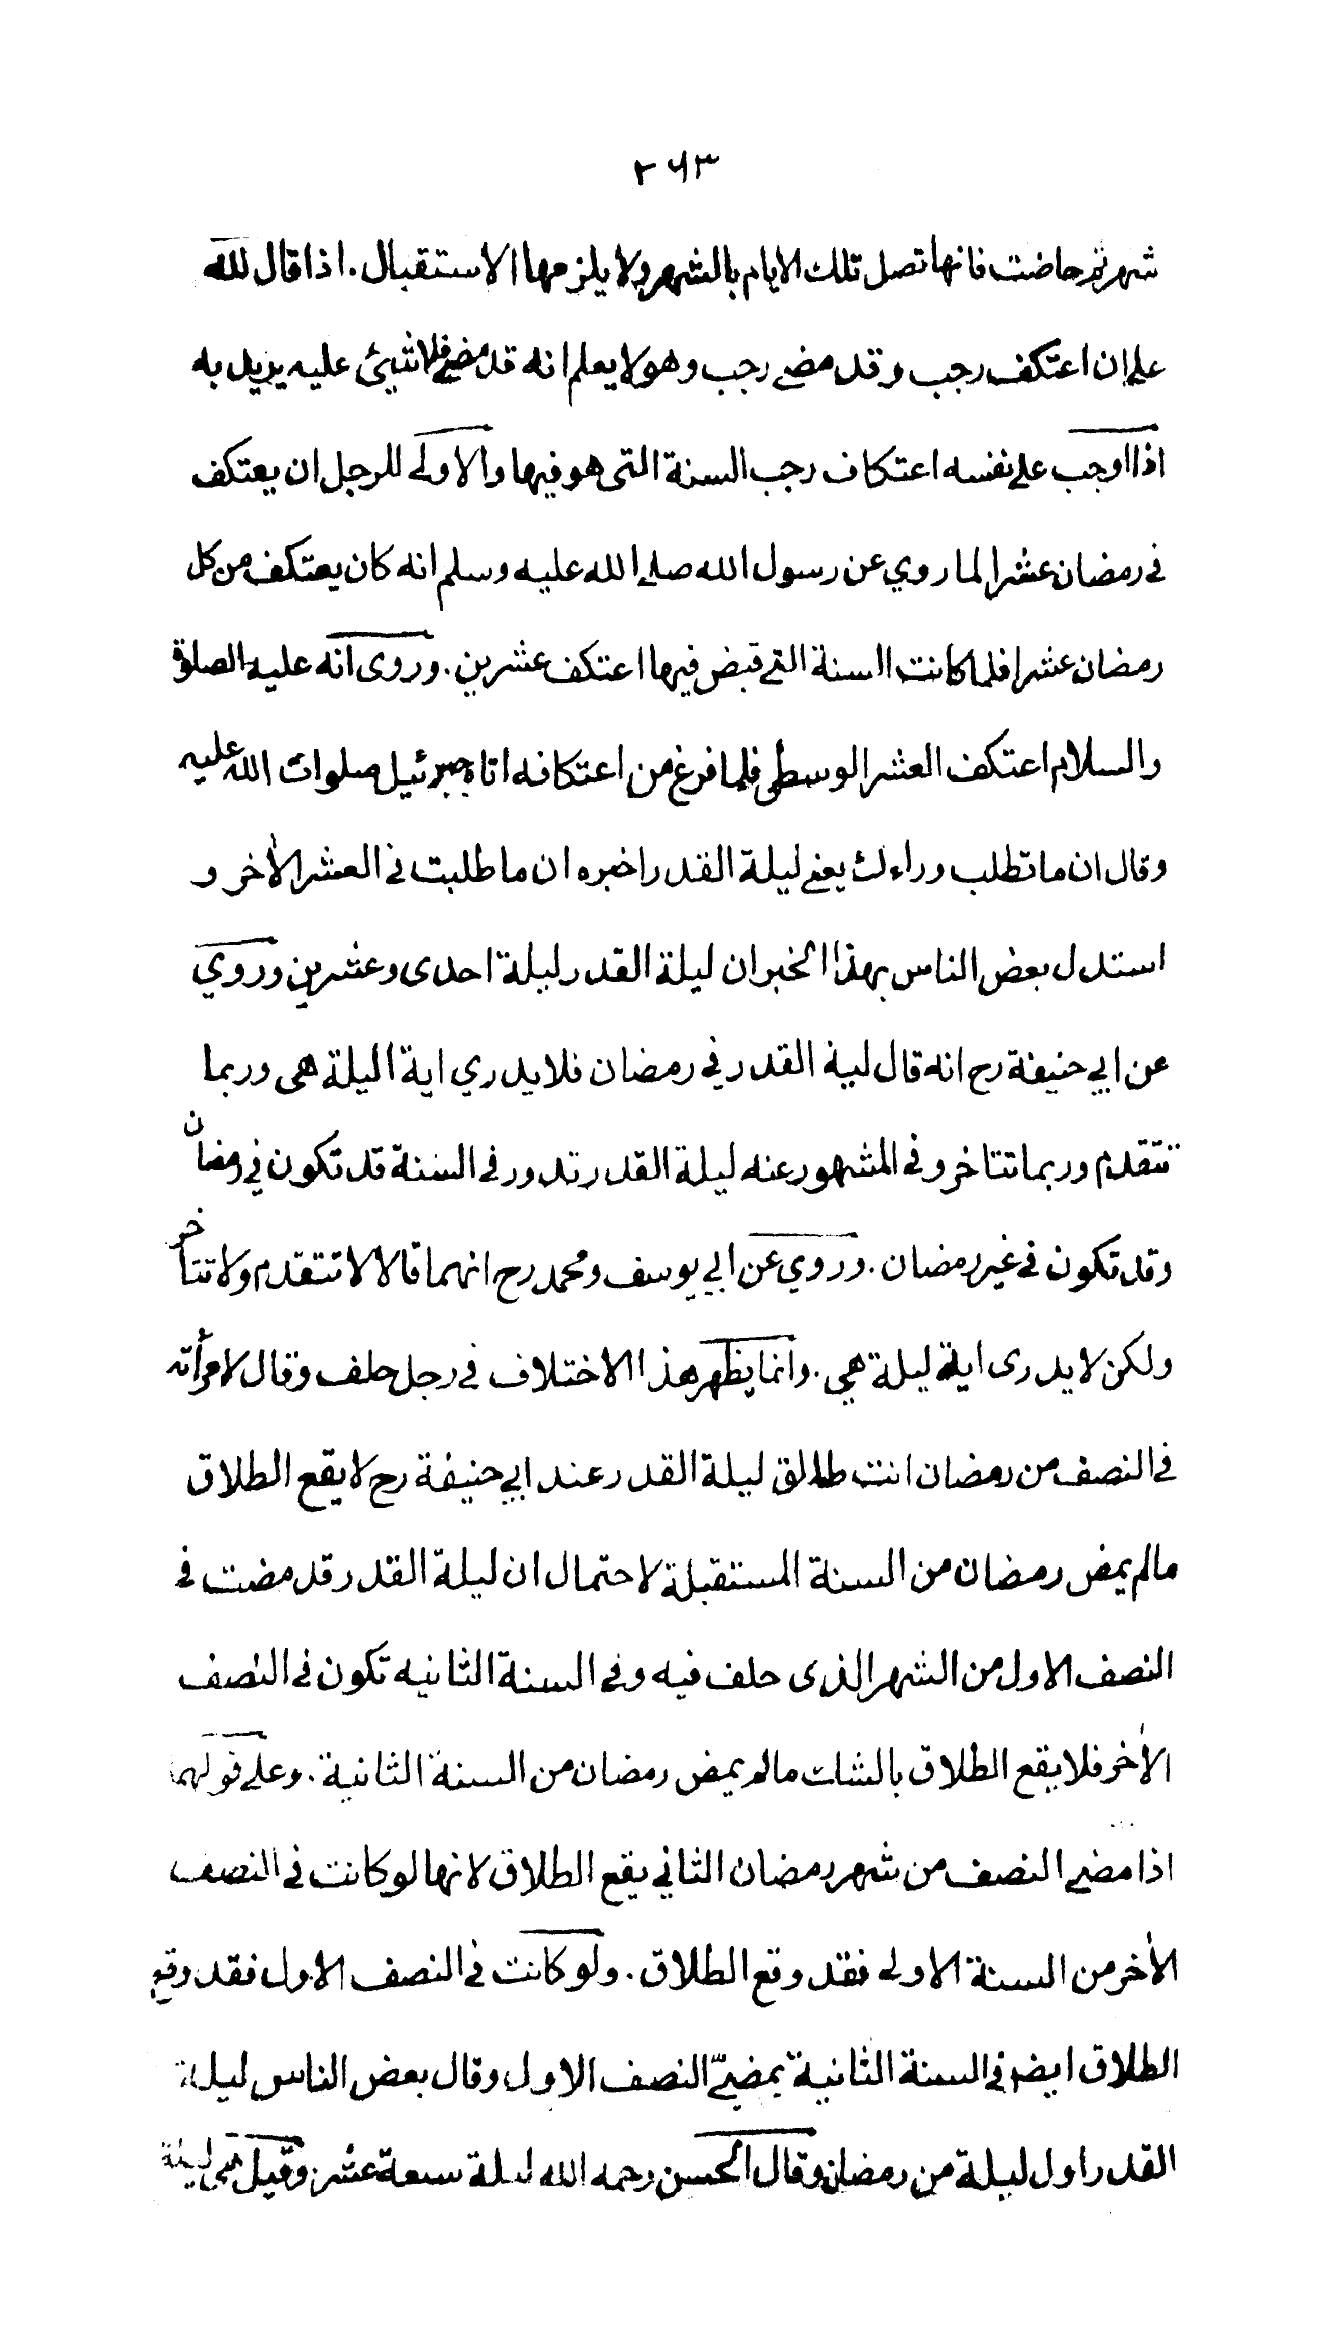 ٢٦٣
شهر ثم حاضت فانها تصل تلك الايام بالشهر ولا يلزمها الاستقبال . اذا قال لله
علي ان اعتكف رجب وقد مضى رجب وهو لا يعلم انه قد مضى فلا شيئ عليه يريد به
اذا اوجب على نفسه اعتكاف رجب السنة التى هو فيها والاولى للرجل ان يعتكف
في رمضان عشرا لما روي عن رسول الله صلى الله عليه وسلم انه كان يعتكف من كل
رمضان عشرا فلما كانت السنة التى قبض فيها اعتكف عشرين . وروى انه عليه الصلوة
والسلام اعتكف العشر الوسطى فلما فرغ من اعتكافه اتاه جبرئيل صلوات الله عليه
وقال ان ما تطلب وراءك يعنى ليلة القدر اخبره ان ما طلبت في العشر الأخر و
استدل بعض الناس بهذا الخبر ان ليلة القدر ليلة احدى وعشرين وروي
عن ابي حنيفة رح انه قال لية القدر في رمضان فلا يدري اية اليلة هى وربما
تتقدم وربما تتاخر وفي المشهور عنه ليلة القدر تدور في السنة قد تكون في رمضان
وقد تكون في غير رمضان . وروي عن ابي يوسف ومحمد رح انهما قالا لا تتقدم ولا تتأخر
ولكن لا يدرى اية ليلة هي . وانما يظهر هذا الاختلاف في رجل حلف وقال لامرأته
في النصف من رمضان انت طالق ليلة القدر عند ابي حنيفة رح لا يقع الطلاق
مالم يمض رمضان من السنة المستقبلة لاحتمال ان ليلة القدر قد مضت في
النصف الاول من الشهر الذى حلف فيه وفي السنة الثانيه تكون في النصف
الأخر فلا يقع الطلاق بالشات مالم يمض رمضان من السنة الثانية . وعلى قولهما
اذا مضى النصف من شهر رمضان الثاني يقع الطلاق لانها لو كانت في النصف
الأخر من السنة الاولى فقد وقع الطلاق . ولو كانت في النصف الاول فقد وقع
الطلاق ايضا في السنة الثانية بمضيّ النصف الاول وقال بعض الناس ليلة
القدر اول ليلة من رمضان وقال الحسن رحمه الله ليلة سبعة عشر وقيل هى ليلة